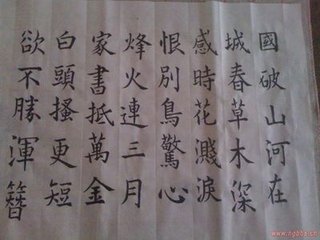 國破山河在
城春草木深
感時花濺淚
恨別鳥驚心
烽火連三月
家書抵萬金
白頭搔更短
欲不勝渾簪